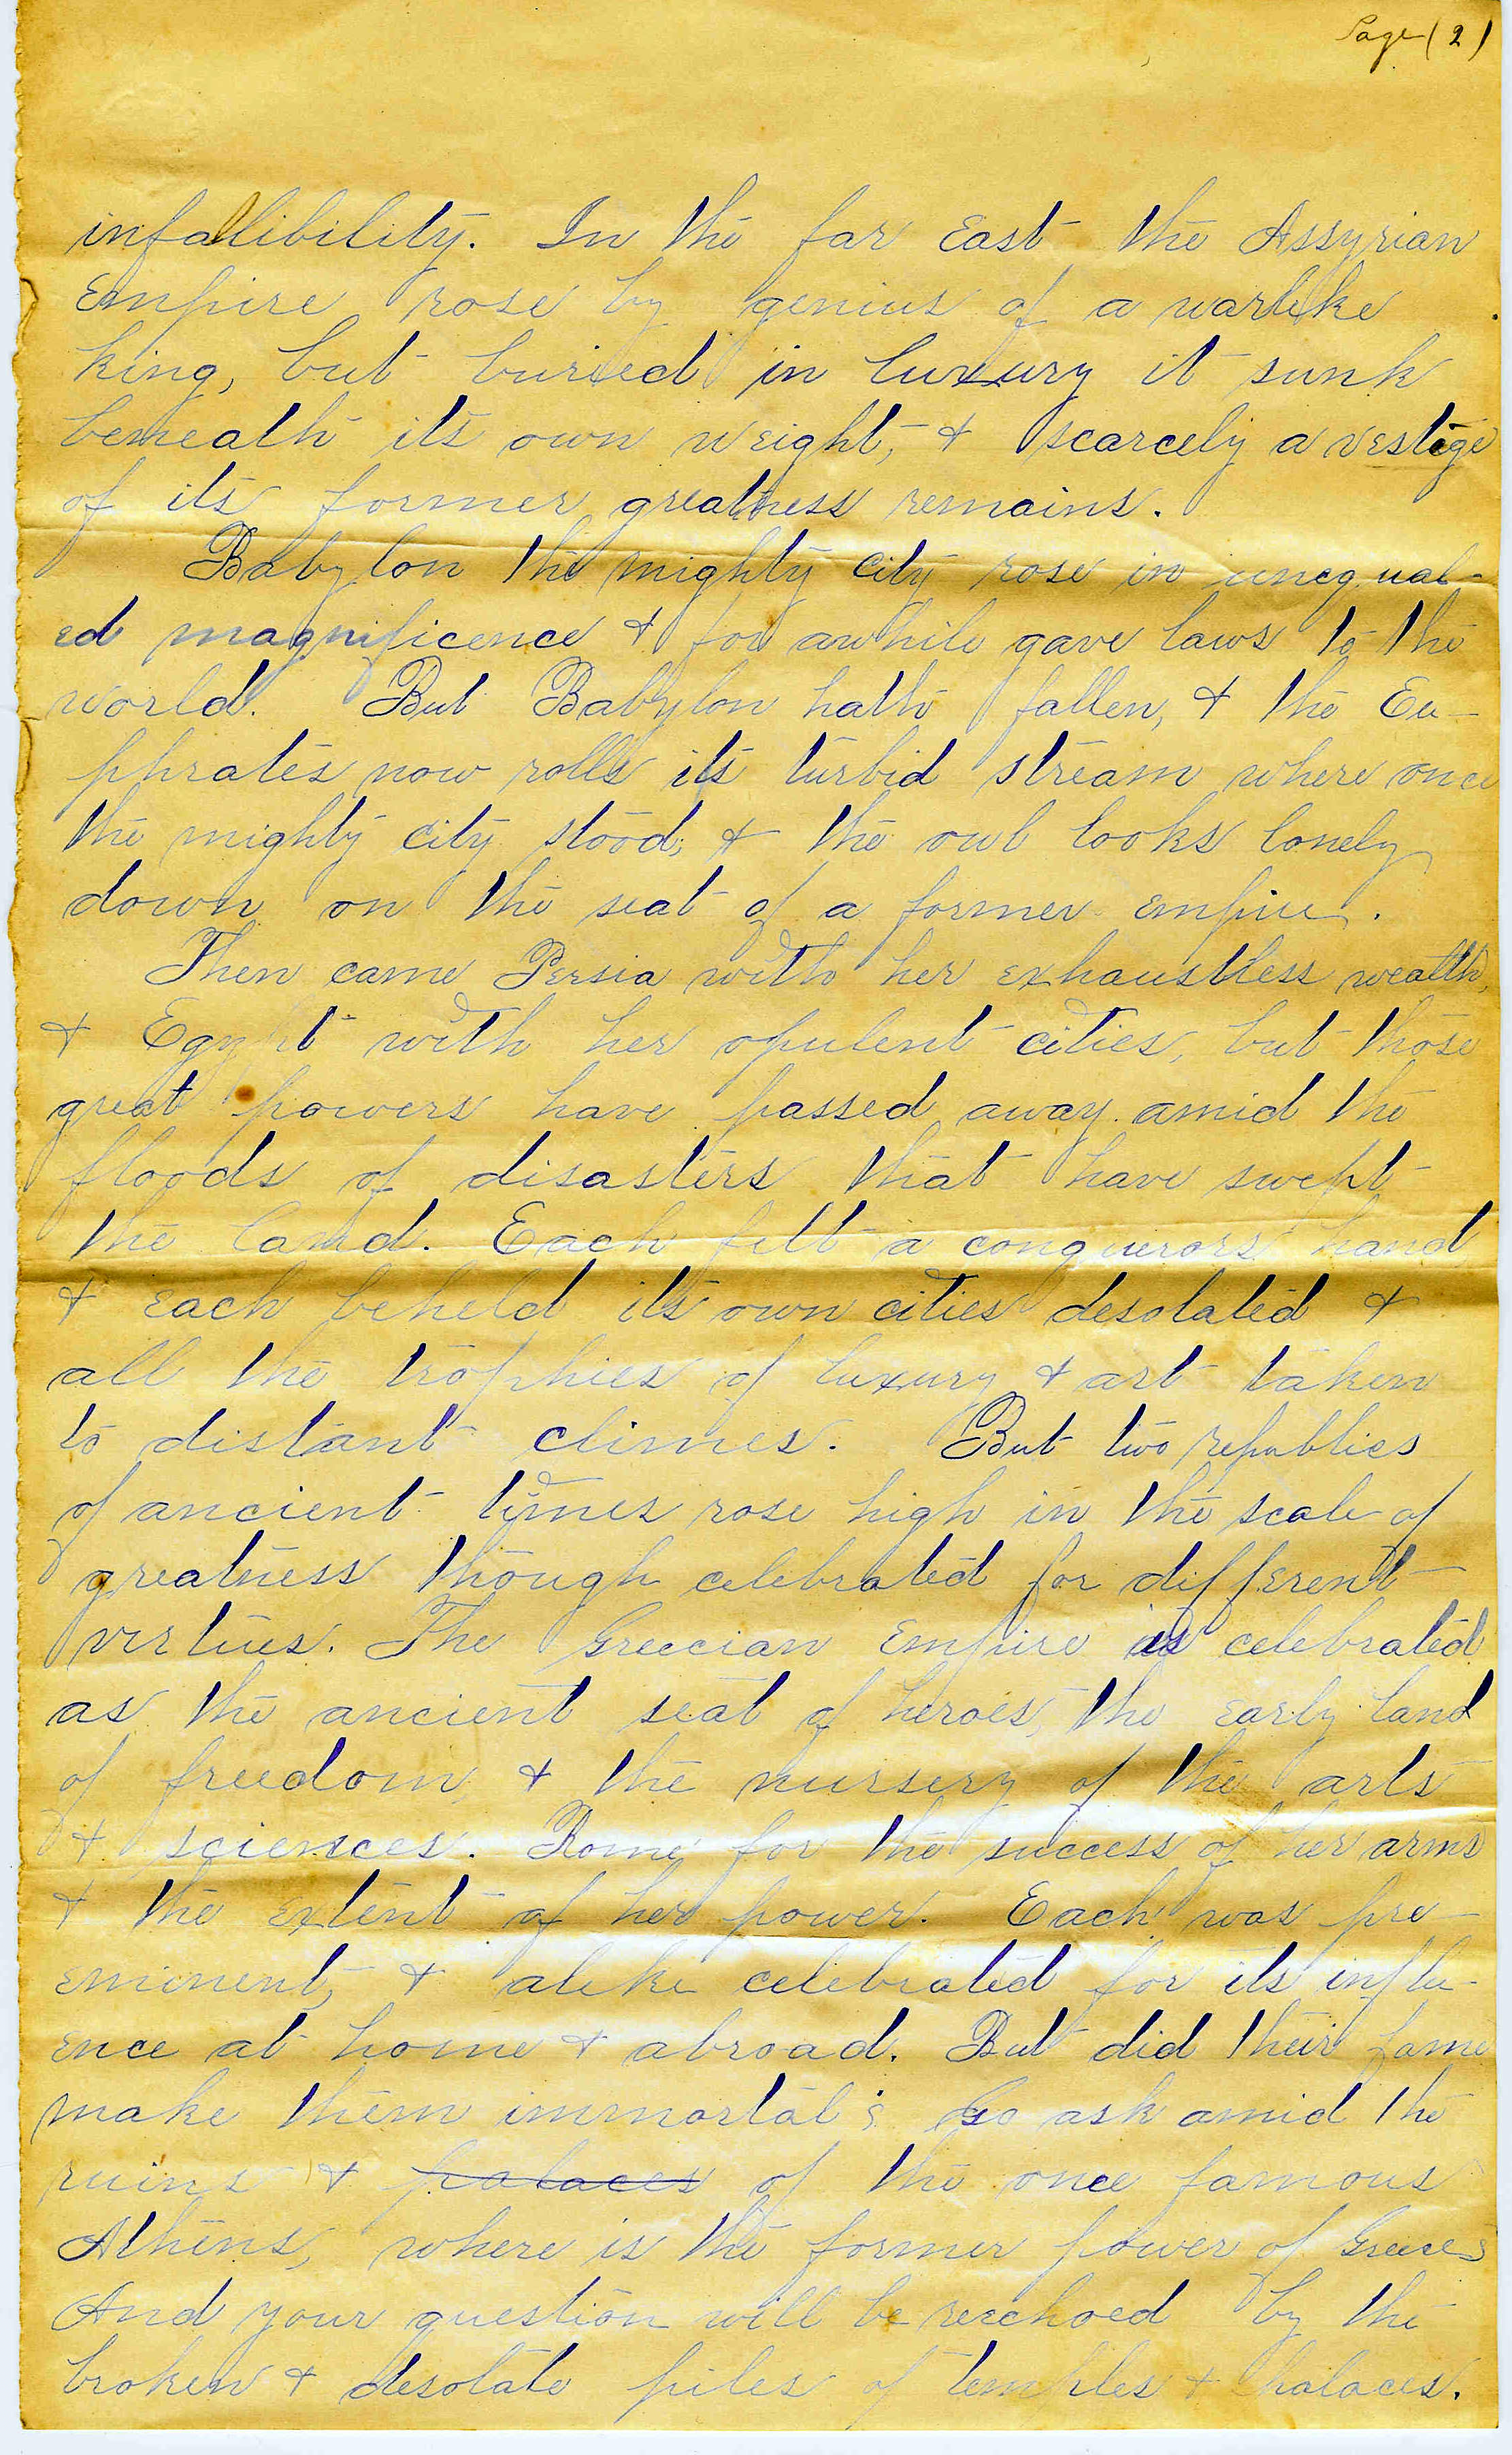 Page (2)
infallibility. In the far East the Assyrian
Empire rose by genius of a warlike
king, but buried in luxury it sunk
beneath its own weight, & scarcely a vestige
of its former greatness remains.
Babylon the mighty city rose in unequal-
ed magnificence & for awhile gave laws to the
world. But Babylon hath fallen, & the Eu-
phrates now rolls its turbid stream where once
the mighty city stood; & the owl looks lonely
down on the seat of a former empire.
Then came Persia with her exhaustless wealth,
& Egypt with her opulent cities, but those
great powers have passed away amid the
floods of disasters that have swept
the land. Each felt a conquerors hand
& each beheld its own cities desolated &
all the trophies of luxury & art taken
to distant climes. But two republics
of ancient times rose high in the scale of
greatness though celebrated for different
virtues. The Greecian Empire is celebrated
as the ancient seat of heroes, the early land
of freedom, & the nursery of the arts
& sciences. Rome for the success of her arms
& the extent of her power. Each was pre-
eminent, & alike celebrated for its influ-
ence at home & abroad. But did their fame
make them immortal? Go ask amid the
ruins & palaces of the once famous
Athens, where is the former power of Greece?
And your question will be reechoed by the
broken & desolate piles of temples & palaces.